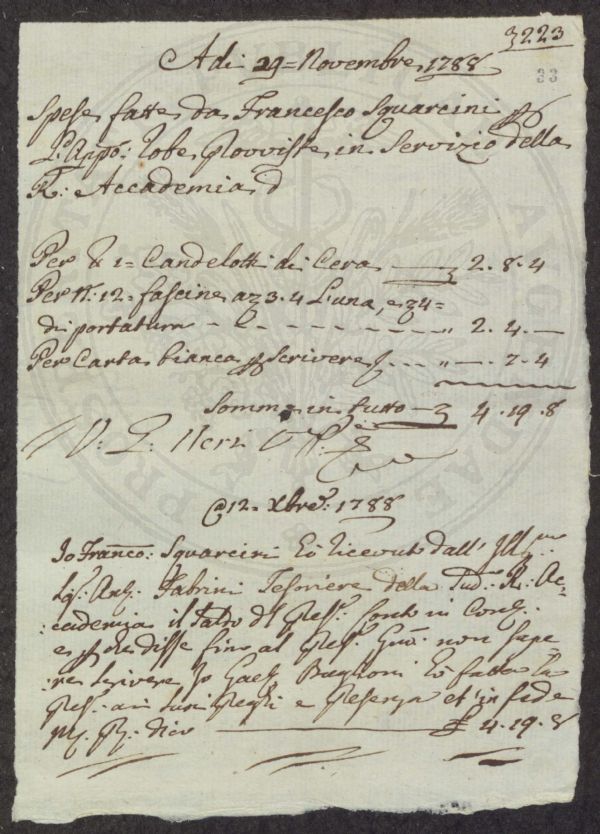 3223
33
Adi 29 = Novembre 1788
Spese fatte da Francesco Squarcini p
L'App.o: Robe Provviste in Servizio della
R: Accademia
Per lb 1 = Candelotti di Cera 2. 8. 4
Per N: 12 = fascine a 3. 4 L'una, e 4 =
di portatura " 2. 4. —
Per Carta bianca p Scrivere " —. 7. 4
Somma in tutto 4. 19. 8
V: Neri
12 = Xbre: 1788
Io Franco: Squarcini ho ricevuto dall' Ill.mo
Sig: Ant. Fabrini Tesoriere della Sud: R. Ac=
:cademia il Saldo del Pres: Conto in Cont:
e p che disse fino al Pres: non sape
:re scrivere Io Gaet: Baglioni ho fatta la
Pres: a suoi Preghi e Presenza et in fede
M: P: dico 4. 19. 8